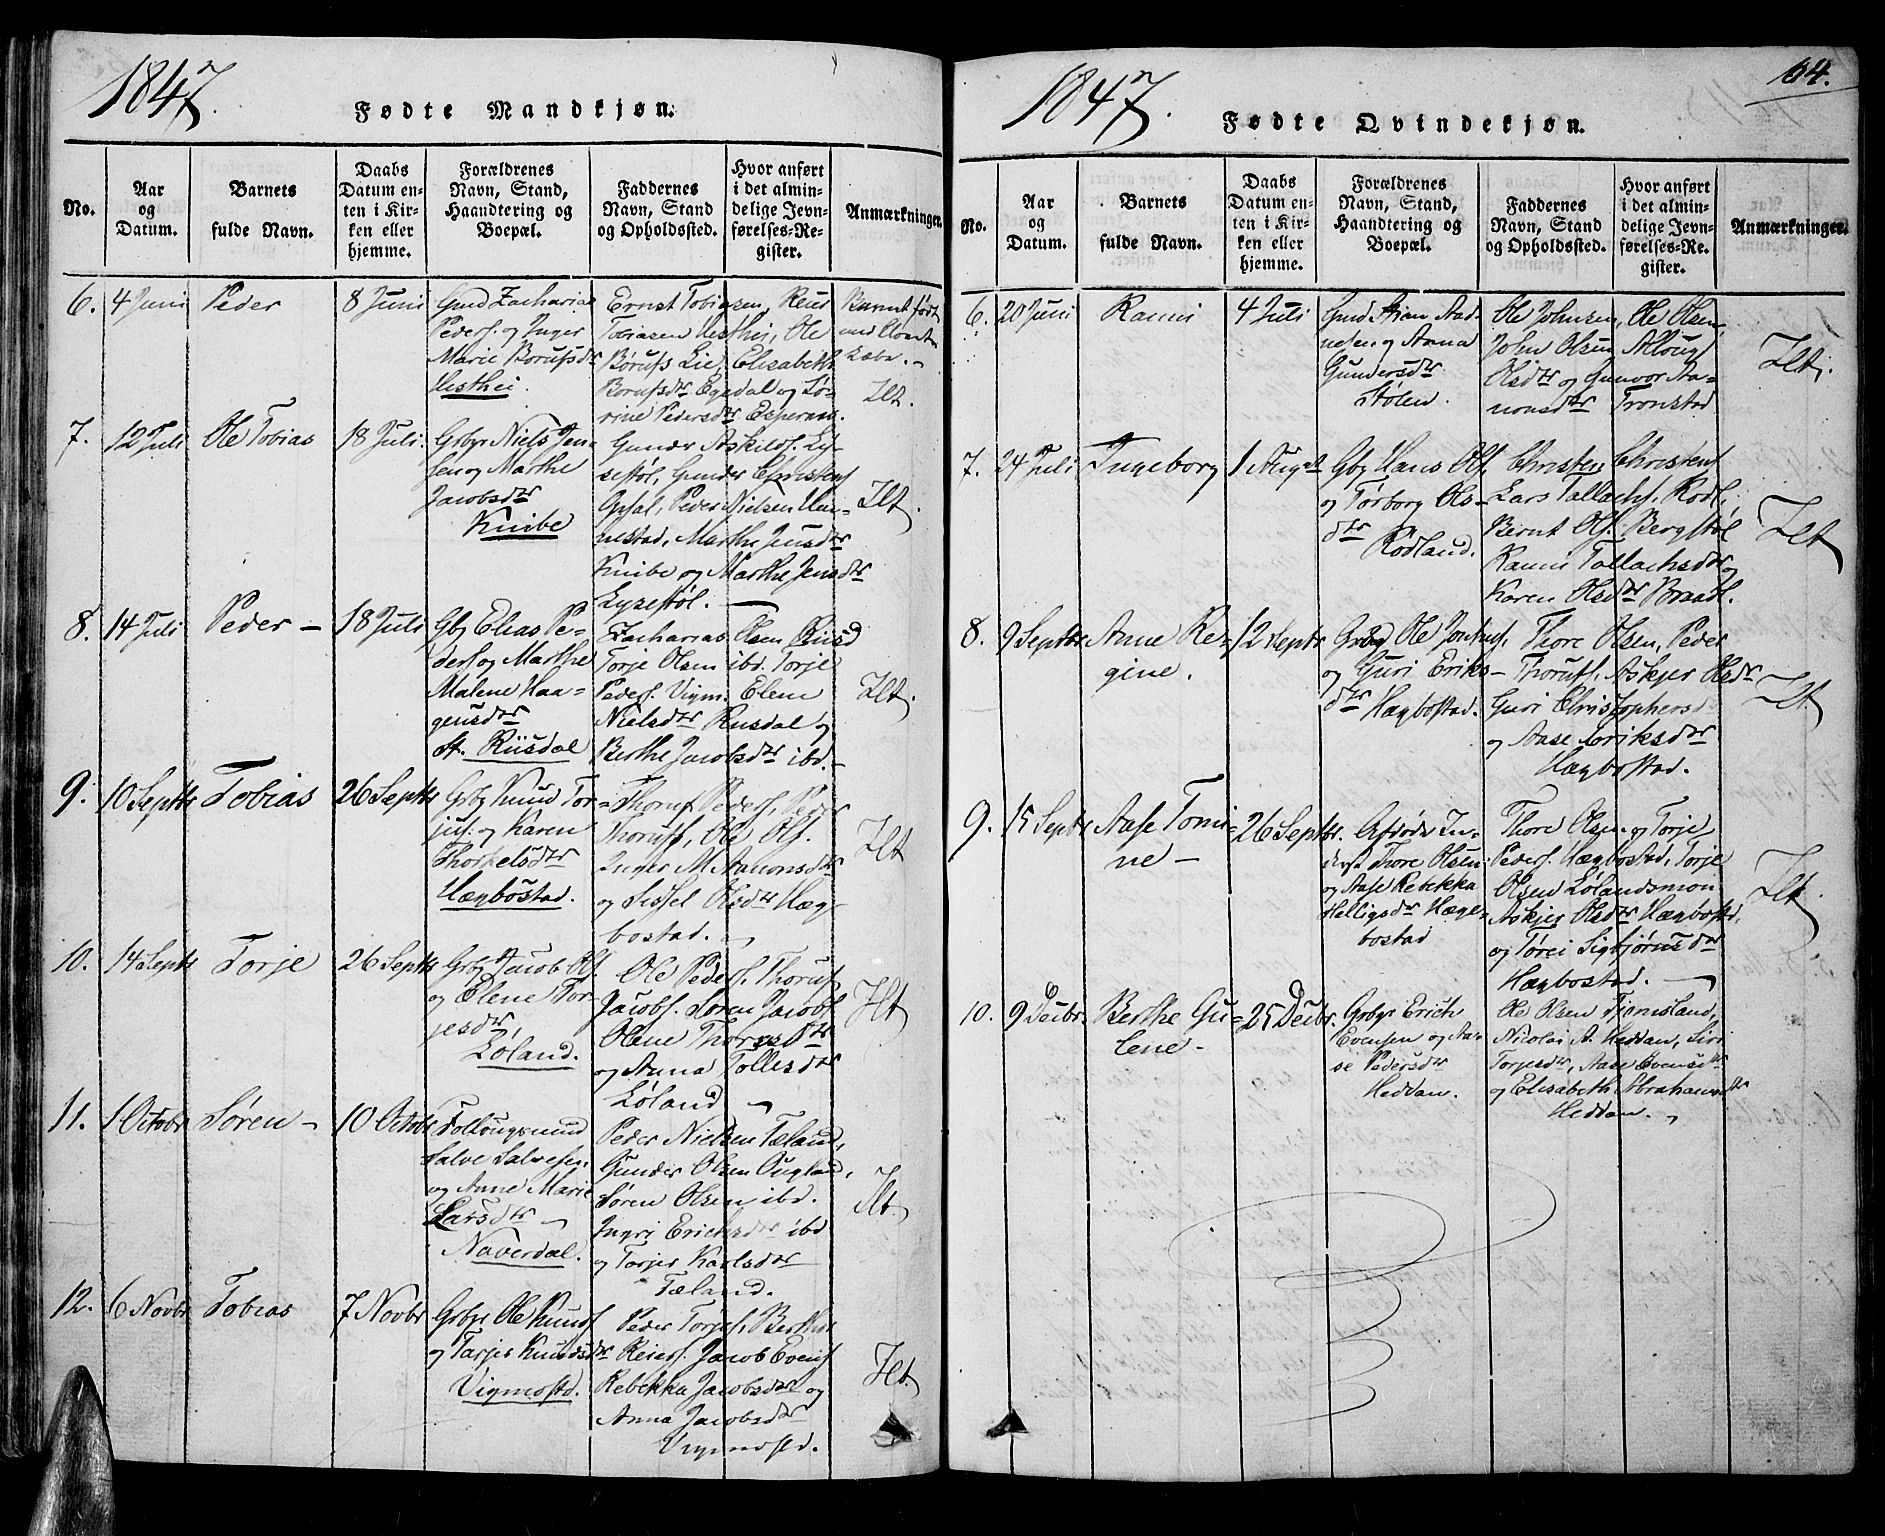 1847.
Fødte Mandkjøn.
No.
Aar
og
Datum.
Barnets
fulde Navn.
Daabs
Datum en-
ten i Kir-
ken eller
hjemme.
Forældrenes
Navn, Stand,
Haandtering og
Boepæl.
Faddernes
Navn, Stand
og Opholdssted.
Hvor anført
i det almin-
delige Jevn-
førelses-Re-
gister.
Anmærkninger.
6. 4 Juni Peder 8 Juni
Gmd Zacharias
Peders. og Inger
Marie Borufsdtr
Hesthei
Ernst Tobiasen, Reier
Tobiasen Hesthei, Ole
Børufs Lie, Elisabeth
Borufsdtr Egedal og Lo-
rine Pedersdtr Espernes.
Barnet født
Ilt.
7. 12 Juli Ole Tobias 18 Juli.
Grbgr Niels Jen-
sen og Marthe
Jacobsdtr
Knibe
Gunder Askilds. Ly-
sestøl, Gunder Christens
Opsal, Peder Nielsen Hen-
nestad, Marthe Jensdtr
Knibe og Marthe Jensdtr
Lysestøl. —
Ilt.
8. 14 Juli Peder — 18 Juli
Gbg Elias Pe-
ders og Marthe
Malene Haa-
gensdtr
St. Riisdal
Zacharias Olsen Riisd
Torje Olsen ibd. Torje
Peders. Vigm. Elene
Nielsdtr Riisdal og
Berthe Jacobsdtr ibd. —
Ilt.
9. 10 Septbr Tobias 26 Septbr
Grbg Knud Tor-
jus. og Karen
Thorkelsdtr
Hægbostad.
Thoruf Peders, Peder
Thorufs, Ole Ols.
Inger M. Aanonsdtr
og Sissel Olsdtr Hæg-
bostad. —
Ilt
10. 14 Septbr Torje 26 Septbr
Grbg Jacob Ols.
og Elene Tor-
jesdtr,
Loland.
Ole Peders. Thoruf
Jacobs. Søren Jacobs.
Olene Thorusdtr
og Anna Tollesdtr
Loland —
Ilt
11. 1 Octobr Søren — 10 Octobr
Follougsmand
Salve Salvesen
og Anne Marie
Larsdtr —
Naverdal.
Peder Nielsen Tæland,
Gunder Olsen Ougland,
Søren Olsen ibd.
Ingri Ericksdtr ibd
og Torjer Karlsdtr
Tæland.
Ilt.
12. 6 Novbr Tobias 7 Novbr
Grbgr Ole Knuds
og Tarjer Knudsdtr
Vigmostd.
Peder Torjes, Berthe
Reiers. Jacob Evens
Rebekka Jacobsdtr og
Anna Jacobsdtr
Vigmostd.
Ilt.
1847.
64.
Fødte Qvindekjøn.
No.
Aar
og
Datum.
Barnets
fulde Navn.
Daabs
Datum en-
ten i Kir-
ken eller
hjemme.
Forældrenes
Navn, Stand,
Haandtering og
Boepæl.
Faddernes
Navn, Stand
og Opholdssted.
Hvor anført
i det almin-
delige Jevn-
førelses-Re-
gister.
Anmærkninger.
6. 20 Juni Ranni 4 Juli
Gmd Stian Aad-
nesen og Anna
Gundersdtr
Stølen.
Ole Johnsen, Ole Olsen
John Olsen
Olsdtr og Gunvor Aa-
nonsdtr Tronstad
Ilt.
7. 24 Juli Ingeborg 1 Augst
Gbg Hans Ols,
og Torborg Ols-
dtr
Rodland.
Christen Christens
Lars Tallachs. Rodl,
Bernt Ols. Bergstøl
Ranni Tallachsdtr og
Karen Olsdtr Braadl.
Ilt
8. 9 Septbr Anne Re-
gine. 12 Septbr
Grbg Ole
og Guri Eriks-
dtr Hægbostad.
Thore Olsen, Peder
Thorufs, Askjer Olsdtr
Guri Christophersd
og Aase Eriksdtr
Hægbostad.
Ilt
9. 15 Septbr Aase Tomi-
ne — 26 Septbr.
Thore Olsen
og Aase Rebekka
Helligsdtr Hæge-
bostad
Thore Olsen og Torje
Peders. Hægbostad, Torje
Olsen Lolandsmon
Askjer Olsdtr Hægbostd.
og Torei Sigbjørnsdtr
Hægbostad. —
Ilt.
10. 9 Decbr. Berthe Gu-
lene — 25 Decbr.
Grbgr Erich
Evensen og Aa-
se Pedersdtr
Heddan.
Ole Olsen Tjomsland,
Nicolai A. Heddan, Siri
Torjesdtr, Aase Evensdtr
og Elisabeth Abrahamsdtr
Heddan. —